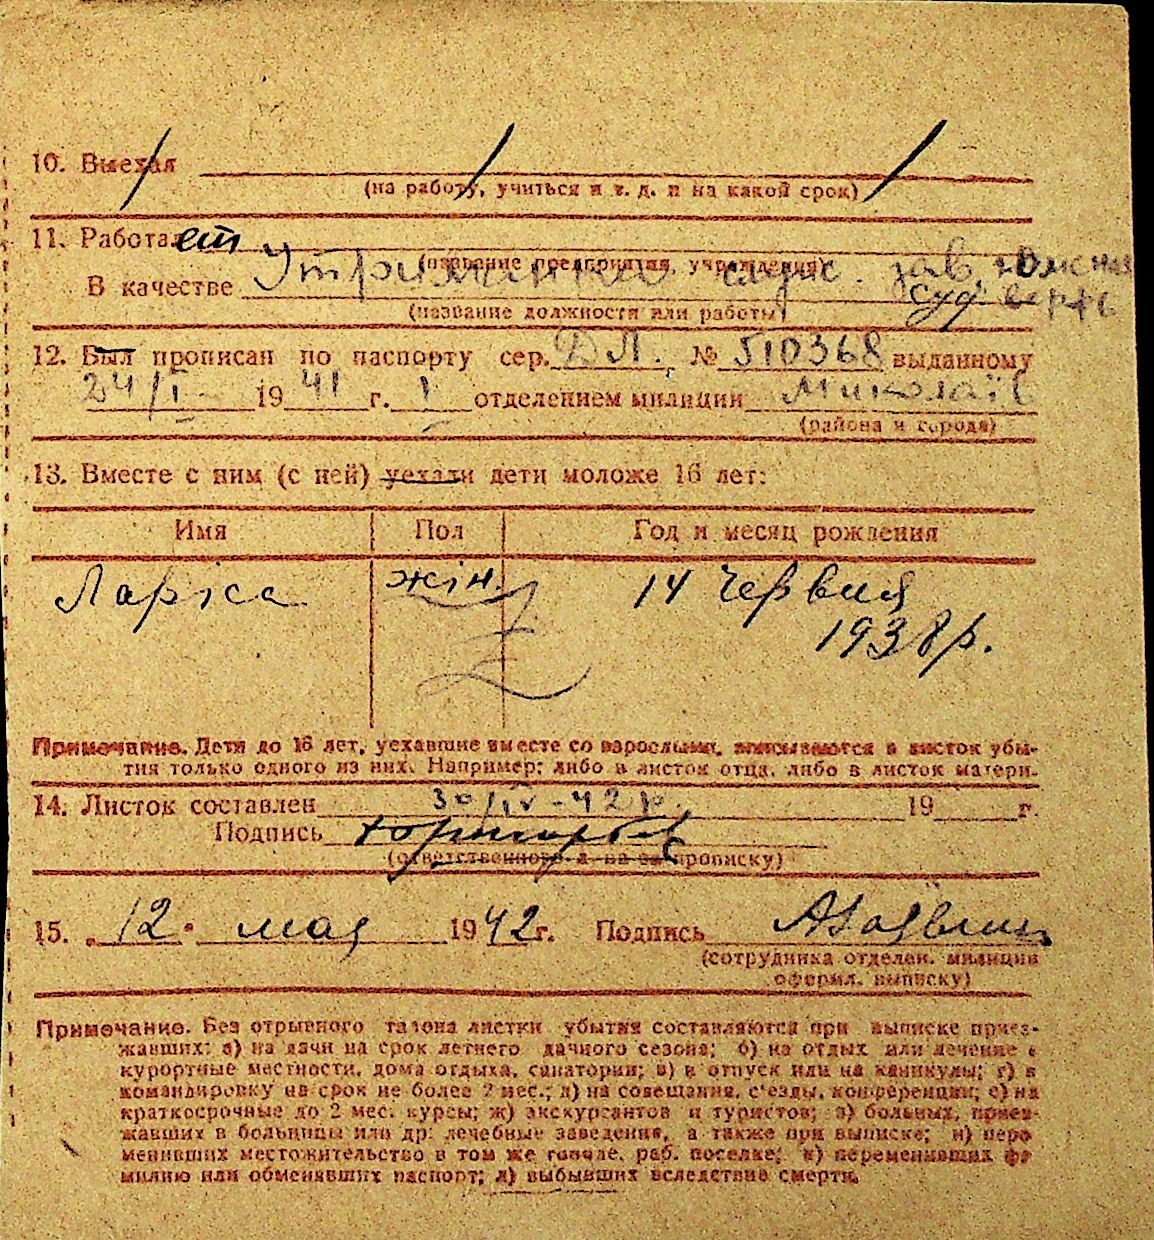 10. Выехал
(на работу, учиться и т. д. и на какой срок)
11. Работает
(название предприятия, учреждения)
В качестве Утриманка служ. зав. Южная
суд. верфь
(название должности или работы)
12. Был прописан по паспорту сер. ДЛ. № 510368 выданному
24/I 1941 г. 1 отделением милиции Миколаїв
(района и города)
13. Вместе с ним (с ней) уехали дети моложе 16 лет:
Имя Пол Год и месяц рождения
Ларіса жін. 14 червня
1938 р.
Примечание. Дети до 16 лет, уехавшие вместе со взрослыми, вписываются в листок убы-
тия только одного из них. Например: либо в листок отца, либо в листок матери.
14. Листок составлен 30/IV-42 р. 19 г.
Подпись
(ответственного л. на за прописку)
15. „12" мая 1942 г. Подпись
(сотрудника отделен. милиции
оформл. выписку)
Примечание. Без отрывного талона листки убытия составляются при выписке приез-
жавших: а) на дачи на срок летнего дачного сезона; б) на отдых или лечение в
курортные местности, дома отдыха, санатории; в) в отпуск или на каникулы; г) в
командировку на срок не более 2 мес.; д) на совещания, с'езды, конференции; е) на
краткосрочные до 2 мес. курсы; ж) экскурсантов и туристов; з) больных, приез-
жавших в больницы или др. лечебные заведения, а также при выписке; и) пере
менивших местожительство в том же городе, раб. поселке; к) переменивших фа
милию или обменявших паспорт; л) выбывших вследствие смерти.